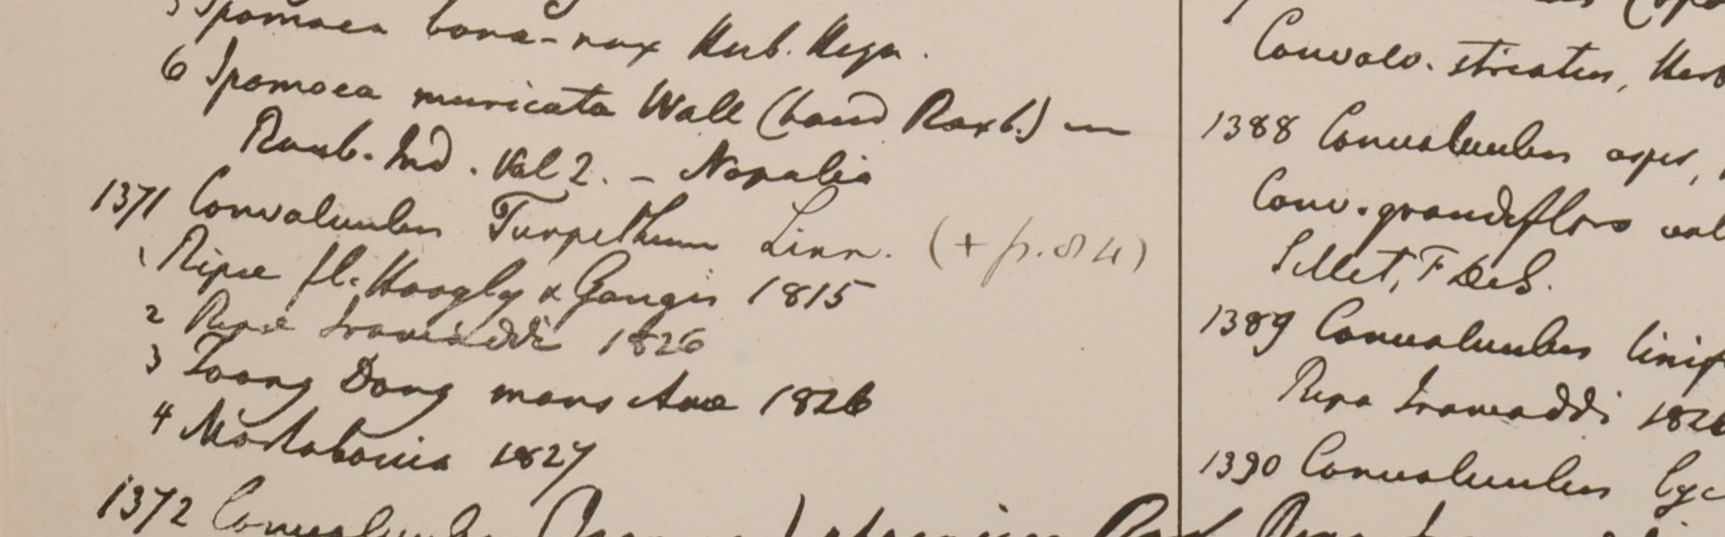 5 Ipomaea bona-nox Herb. Heyn.
6 Ipomoea muricata Wall (haud Roxb.) in
Roxb. Ind. Vol 2. – Napalia
1371 Convolvulus Turpethum Linn. (+ p. 84)
1 Ripae fl. Hoogly & Gangis 1815
2 Ripae Irawaddi 1826
3 Toong Dong mons Avae 1826
4 Martabania 1827
1372 Convolvulus
Convolv. striatus, Herb
1388 Convolvulus asper,
Conv. grandiflora
Sillet, F DeS.
1389 Convolvulus linif
Ripa Irawaddi 1826
1390 Convolvulus Cyc